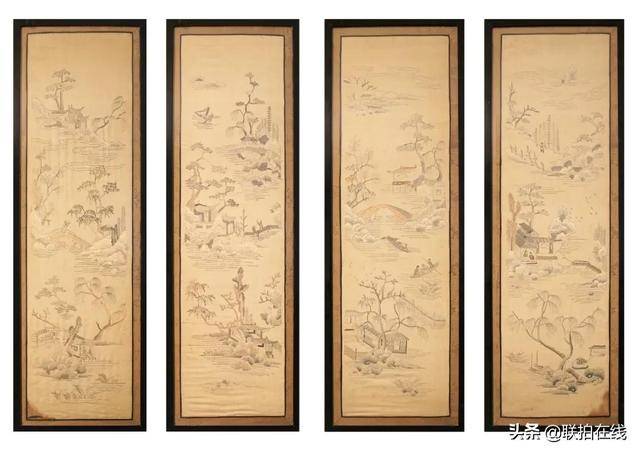 头条 @联拍在线